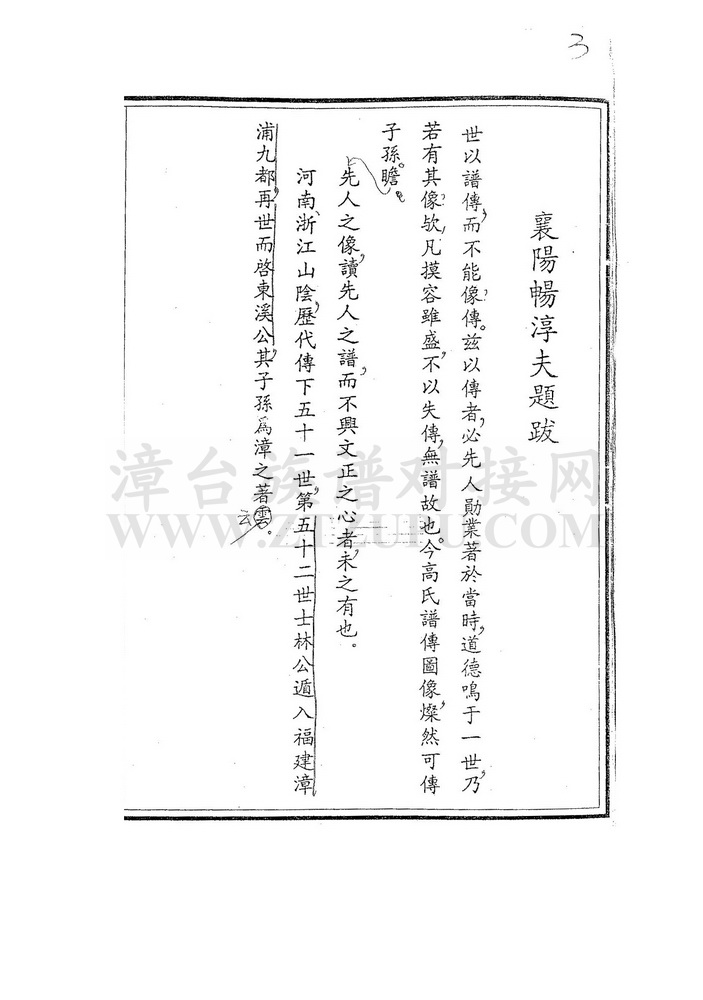 3
襄陽暢淳夫題跋
世以譜傳，而不能像傳。茲以傳者，必先人勛業著於當時，道德鳴于一世，乃
若有其像，欤，凡摸容雖盛，不以失傳，無譜故也。今高氏譜傳圖像，燦然可傳
子孫。瞻
先人之像，讀先人之譜，而不興文正之心者，未之有也。
河南、浙江山陰，歷代傳下五十一世，第五十二世士林公遁入福建漳
浦九都，再世而啓東溪公，其子孫為漳之著雲。
云
漳台族谱对接网
WWW.ZTZUPU.COM